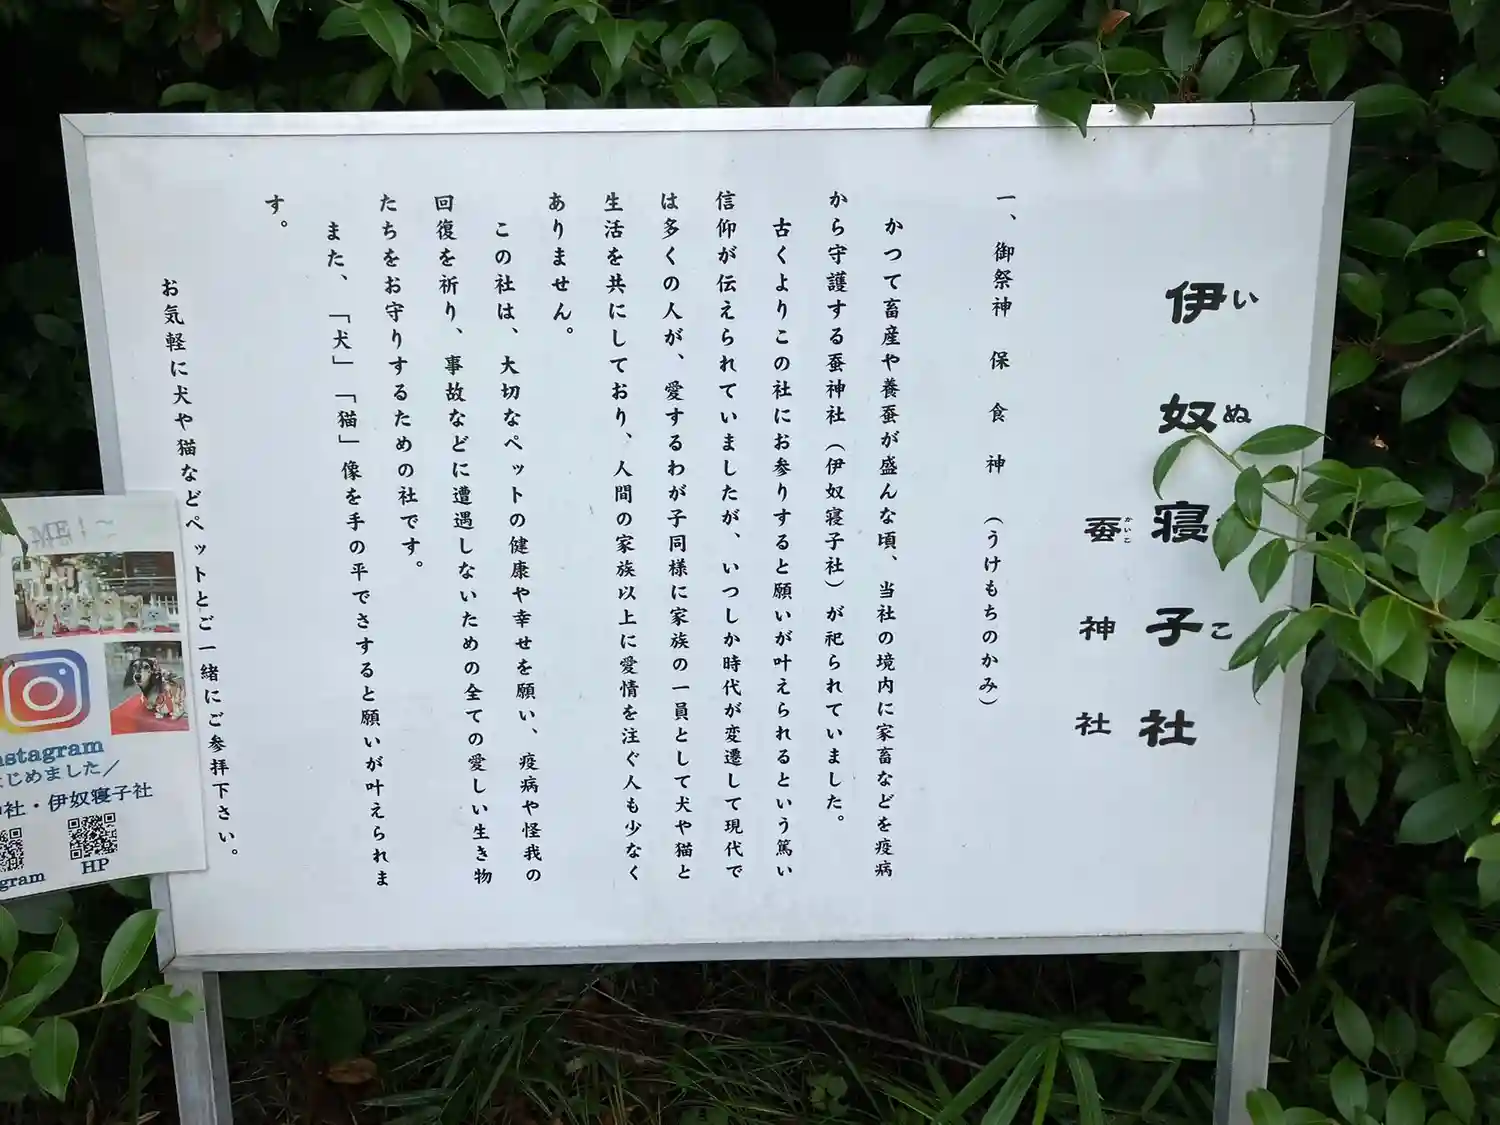 伊奴寝子社
いぬ こ
蚕神社
かいこ
一、御祭神 保食神（うけもちのかみ）
かつて畜産や養蚕が盛んな頃、当社の境内に家畜などを疫病
から守護する蚕神社（伊奴寝子社）が祀られていました。
古くよりこの社にお参りすると願いが叶えられるという篤い
信仰が伝えられていましたが、いつしか時代が変遷して現代で
は多くの人が、愛するわが子同様に家族の一員として犬や猫と
生活を共にしており、人間の家族以上に愛情を注ぐ人も少なく
ありません。
この社は、大切なペットの健康や幸せを願い、疫病や怪我の
回復を祈り、事故などに遭遇しないための全ての愛しい生き物
たちをお守りするための社です。
また、「犬」「猫」像を手の平でさすると願いが叶えられま
す。
お気軽に犬や猫などペットとご一緒にご参拝下さい。
nstagram
じめました／
社・伊奴寝子社
gram
HP